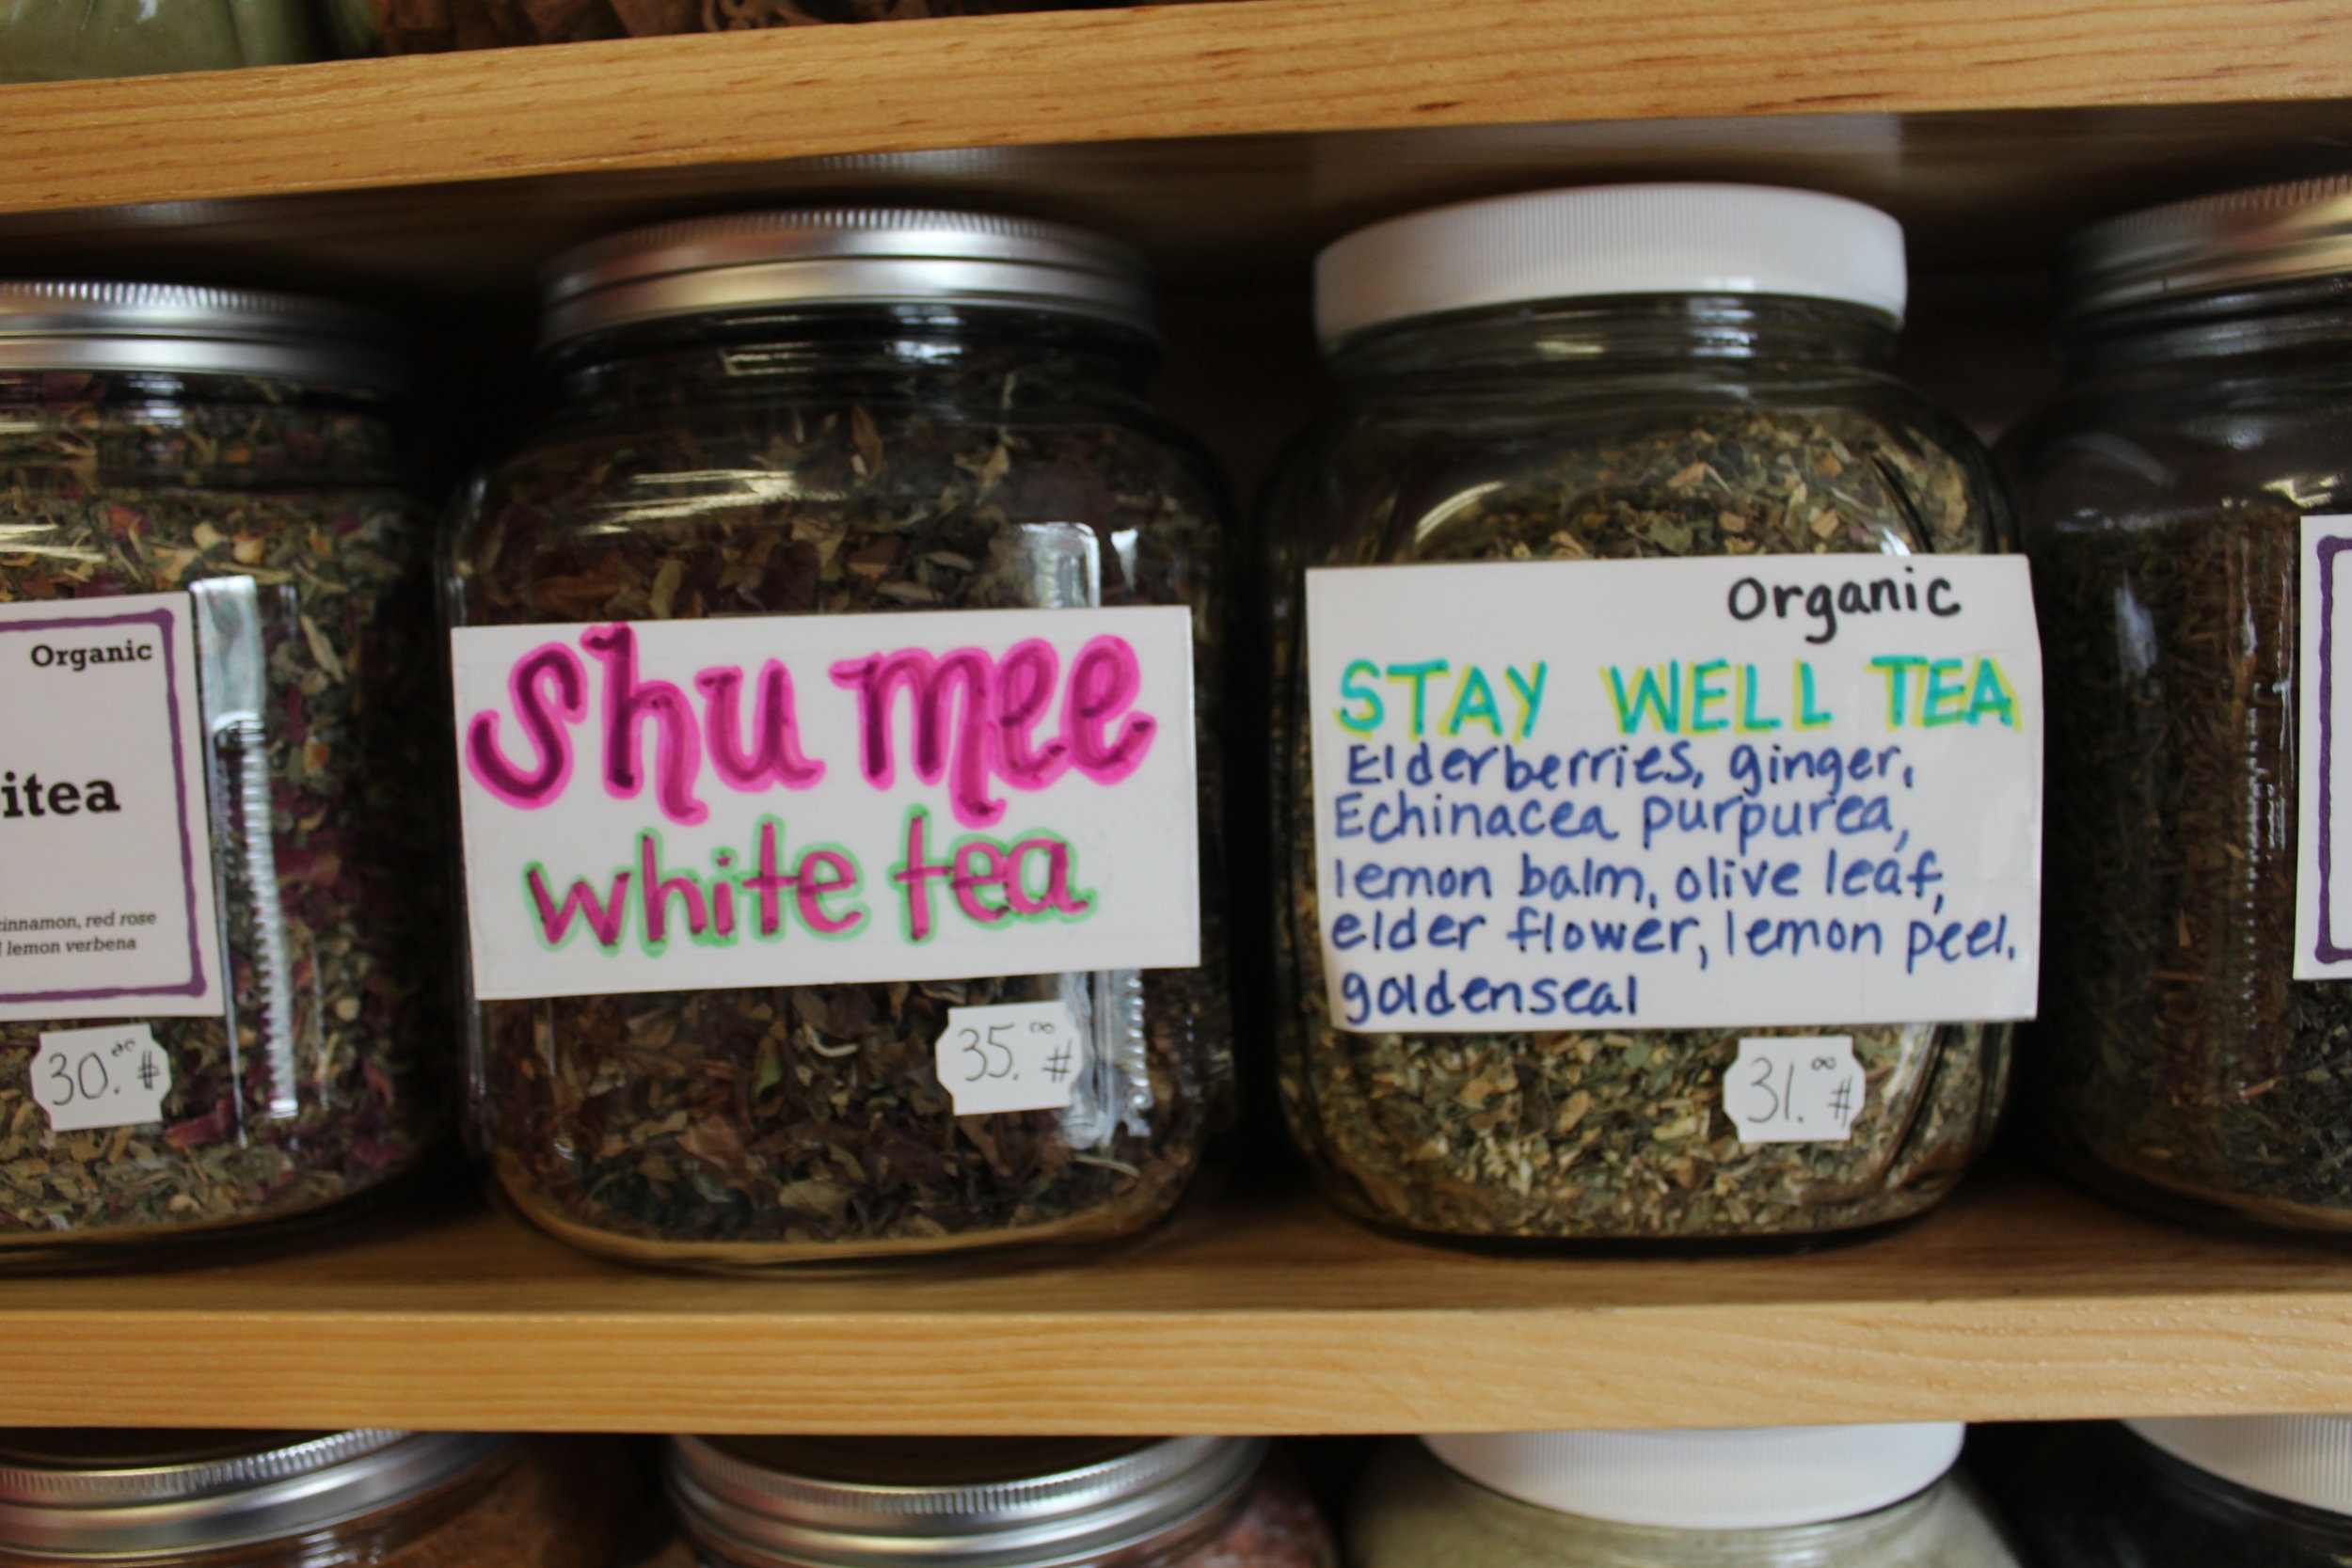 Organic
itea
cinnamon, red rose
lemon verbena
30.00 #
Shu mee
white tea
35.00 #
Organic
STAY WELL TEA
Elderberries, ginger,
Echinacea purpurea,
lemon balm, olive leaf,
elder flower, lemon peel,
goldenseal
31.00 #